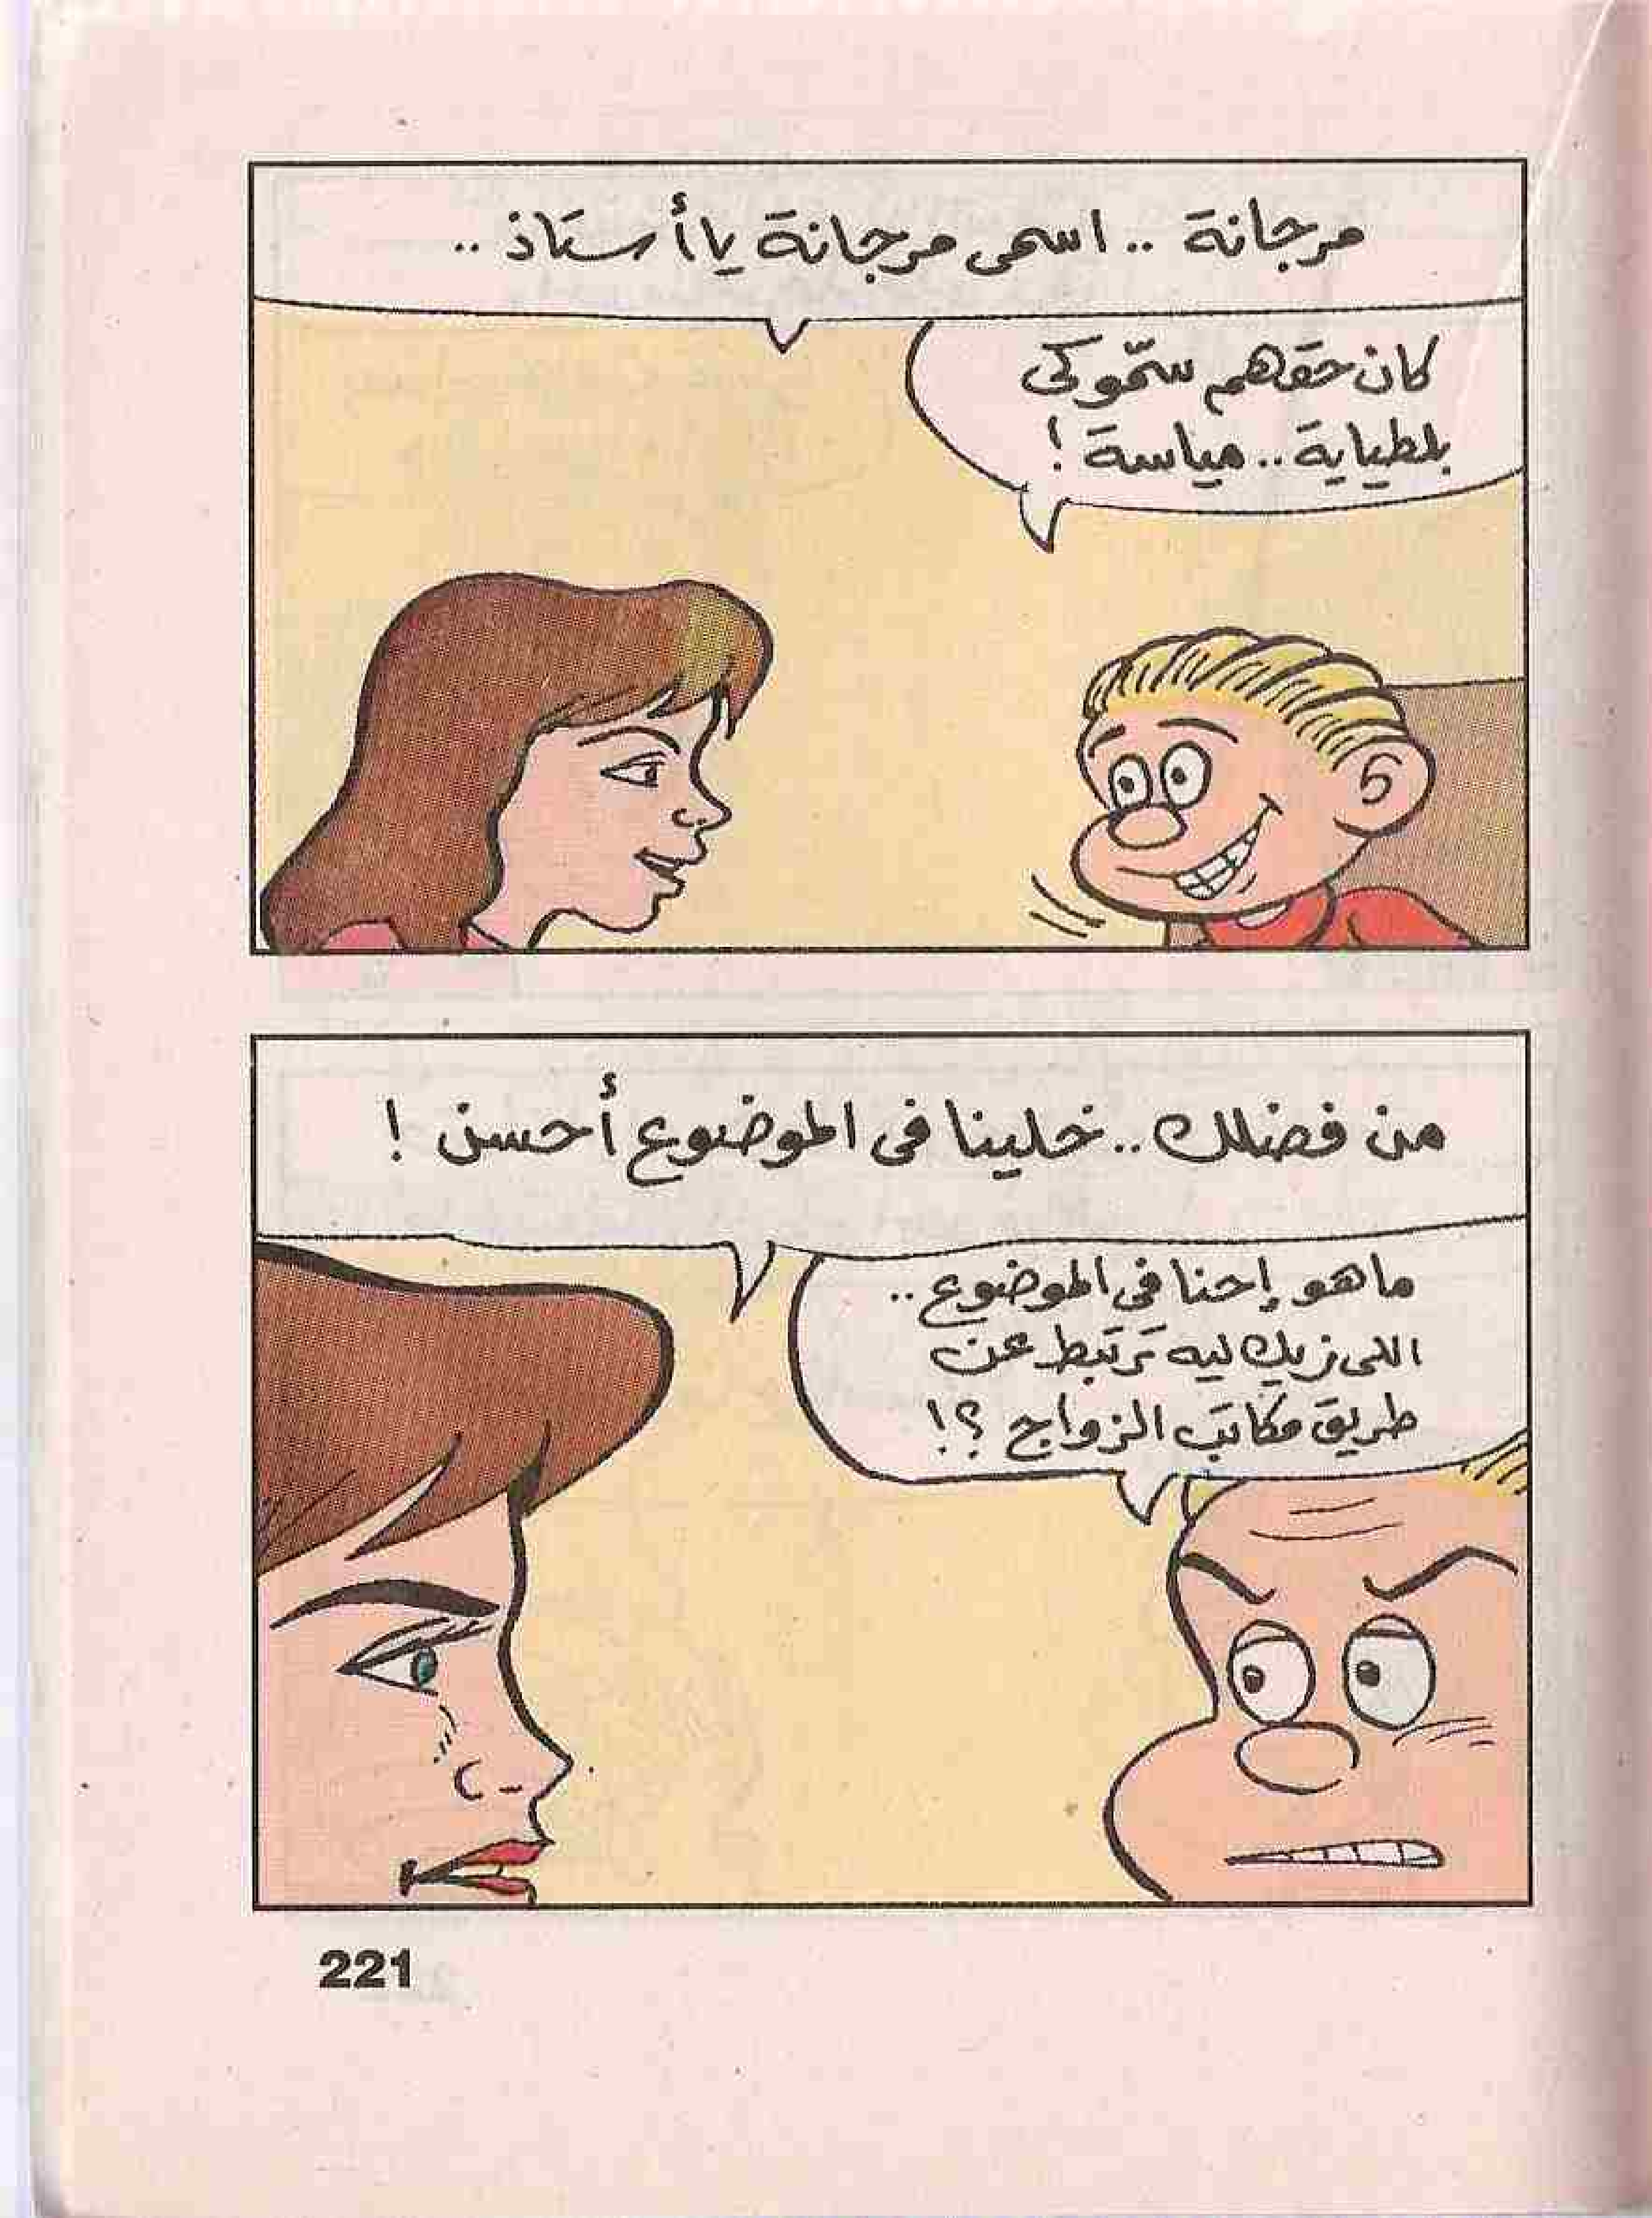 مرجانة .. اسمى مرجانة يا أستاذ ..
كان حقهم سمّوكى
بلطياية .. مياسة !
من فضلك .. خلينا فى الموضوع أحسن !
ما هو إحنا فى الموضوع ..
اللى زيك ليه ترتبط عن
طريق مكاتب الزواج ؟!
221